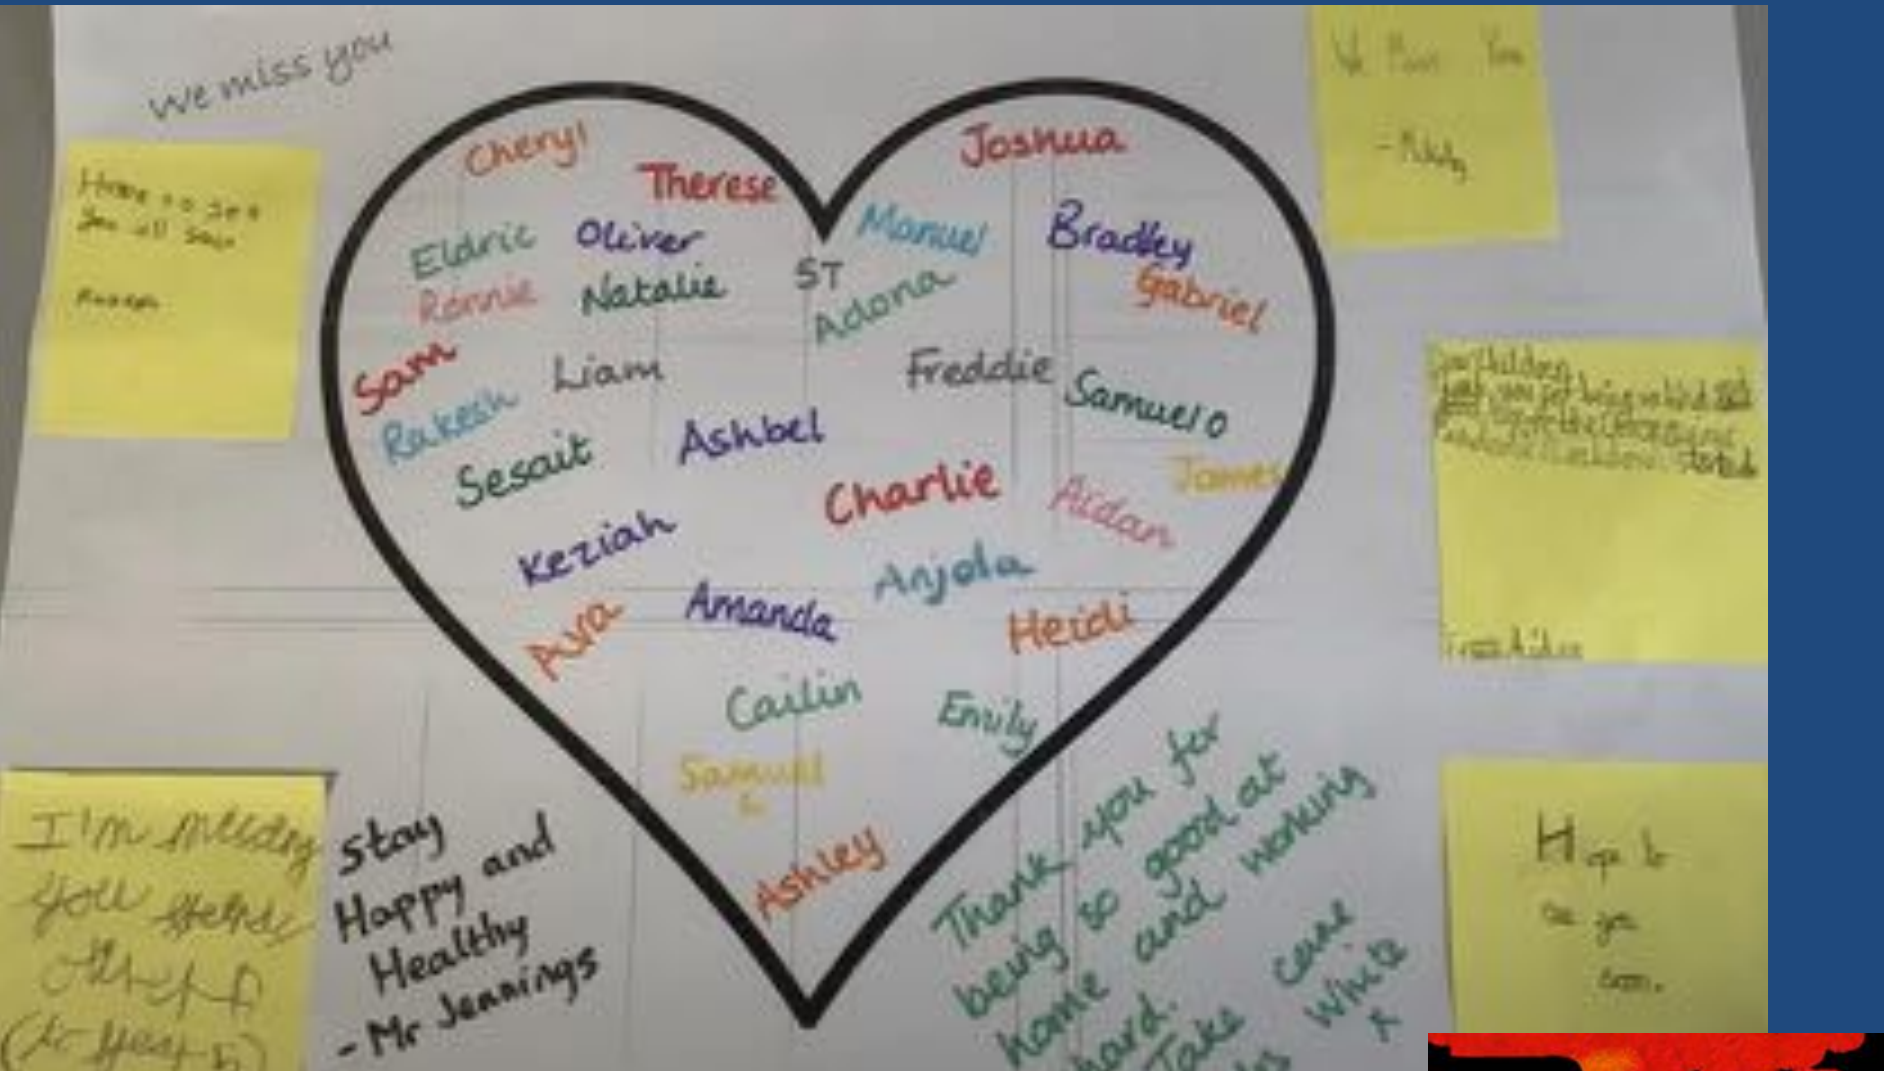 We miss you
Cheryl
Therese
Joshua
Eldric
Oliver
Manuel
Bradley
Ronnie
Natalie
ST
Adona
Gabriel
Sam
Liam
Freddie
Samuel O
Rakesh
Sesait
Ashbel
Charlie
Aidan
James
Keziah
Anjola
Ava
Amanda
Heidi
Cailin
Emily
Samuel
Ashley
you all soon
We Miss You
I'm missing
you
Stay
Happy and
Healthy
- Mr Jennings
Thank you for
being so good at
home and working
hard.
Take care
White
x
Hope to
see you
soon.